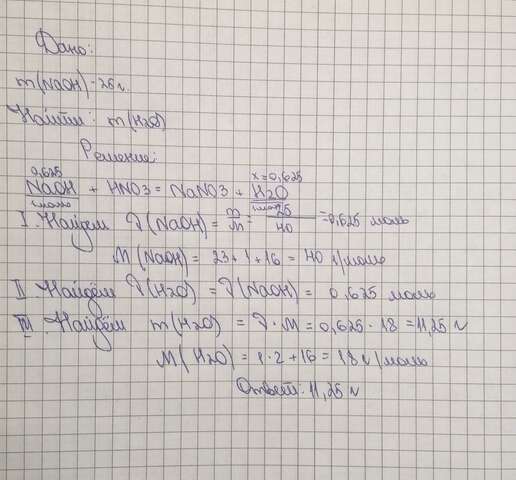 Дано:
m(NaOH) = 25 г.
Найти: m(H2O)
Решение:
0,625 x = 0,625
NaOH + HNO3 = NaNO3 + H2O
1моль 1моль
I. Найдем ν(NaOH) = m/M = 25/40 = 0,625 моль
M(NaOH) = 23 + 1 + 16 = 40 г/моль
II. Найдём ν(H2O) = ν(NaOH) = 0,625 моль
III. Найдём m(H2O) = ν · M = 0,625 · 18 = 11,25 г
M(H2O) = 1 · 2 + 16 = 18 г/моль
Ответ: 11,25 г